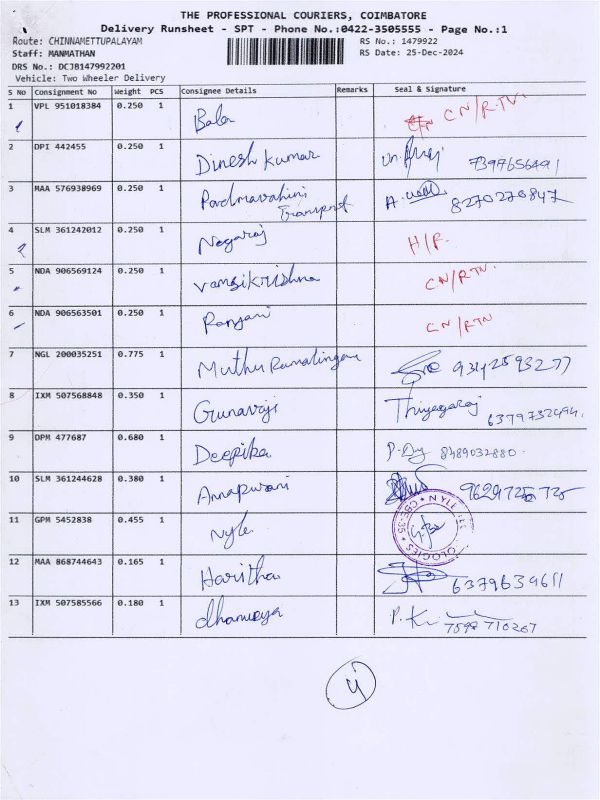 THE PROFESSIONAL COURIERS, COIMBATORE
Delivery Runsheet - SPT - Phone No.:0422-3505555 - Page No.:1
Route: CHINNAMETTUPALAYAM RS No.: 1479922
Staff: MANMATHAN RS Date: 25-Dec-2024
DRS No.: DCJB147992201
Vehicle: Two Wheeler Delivery
S No Consignment No Weight PCS Consignee Details Remarks Seal & Signature
1 VPL 951018384 0.250 1 Bala CN/RTN.
2 DPI 442455 0.250 1 Dinesh kumar 7397656491
3 MAA 576938969 0.250 1 Padmavahini Transport 8270270847
4 SLM 361242012 0.250 1 Nagaraj H/F.
5 NDA 906569124 0.250 1 vamsikrishna CN/RTN.
6 NDA 906563501 0.250 1 Ranjani CN/RTN
7 NGL 200035251 0.775 1 Muthu Ramalingam 9342593277
8 IXM 507568848 0.350 1 Gunavaji Thiyagaraj 6379732494.
9 DPM 477687 0.680 1 Deepika 8489032880.
10 SLM 361244628 0.380 1 Annapurani 9629725725
11 GPM 5452838 0.455 1 Nyle CBE-35
12 MAA 868744643 0.165 1 Haritha 6379639611
13 IXM 507585566 0.180 1 7592710267